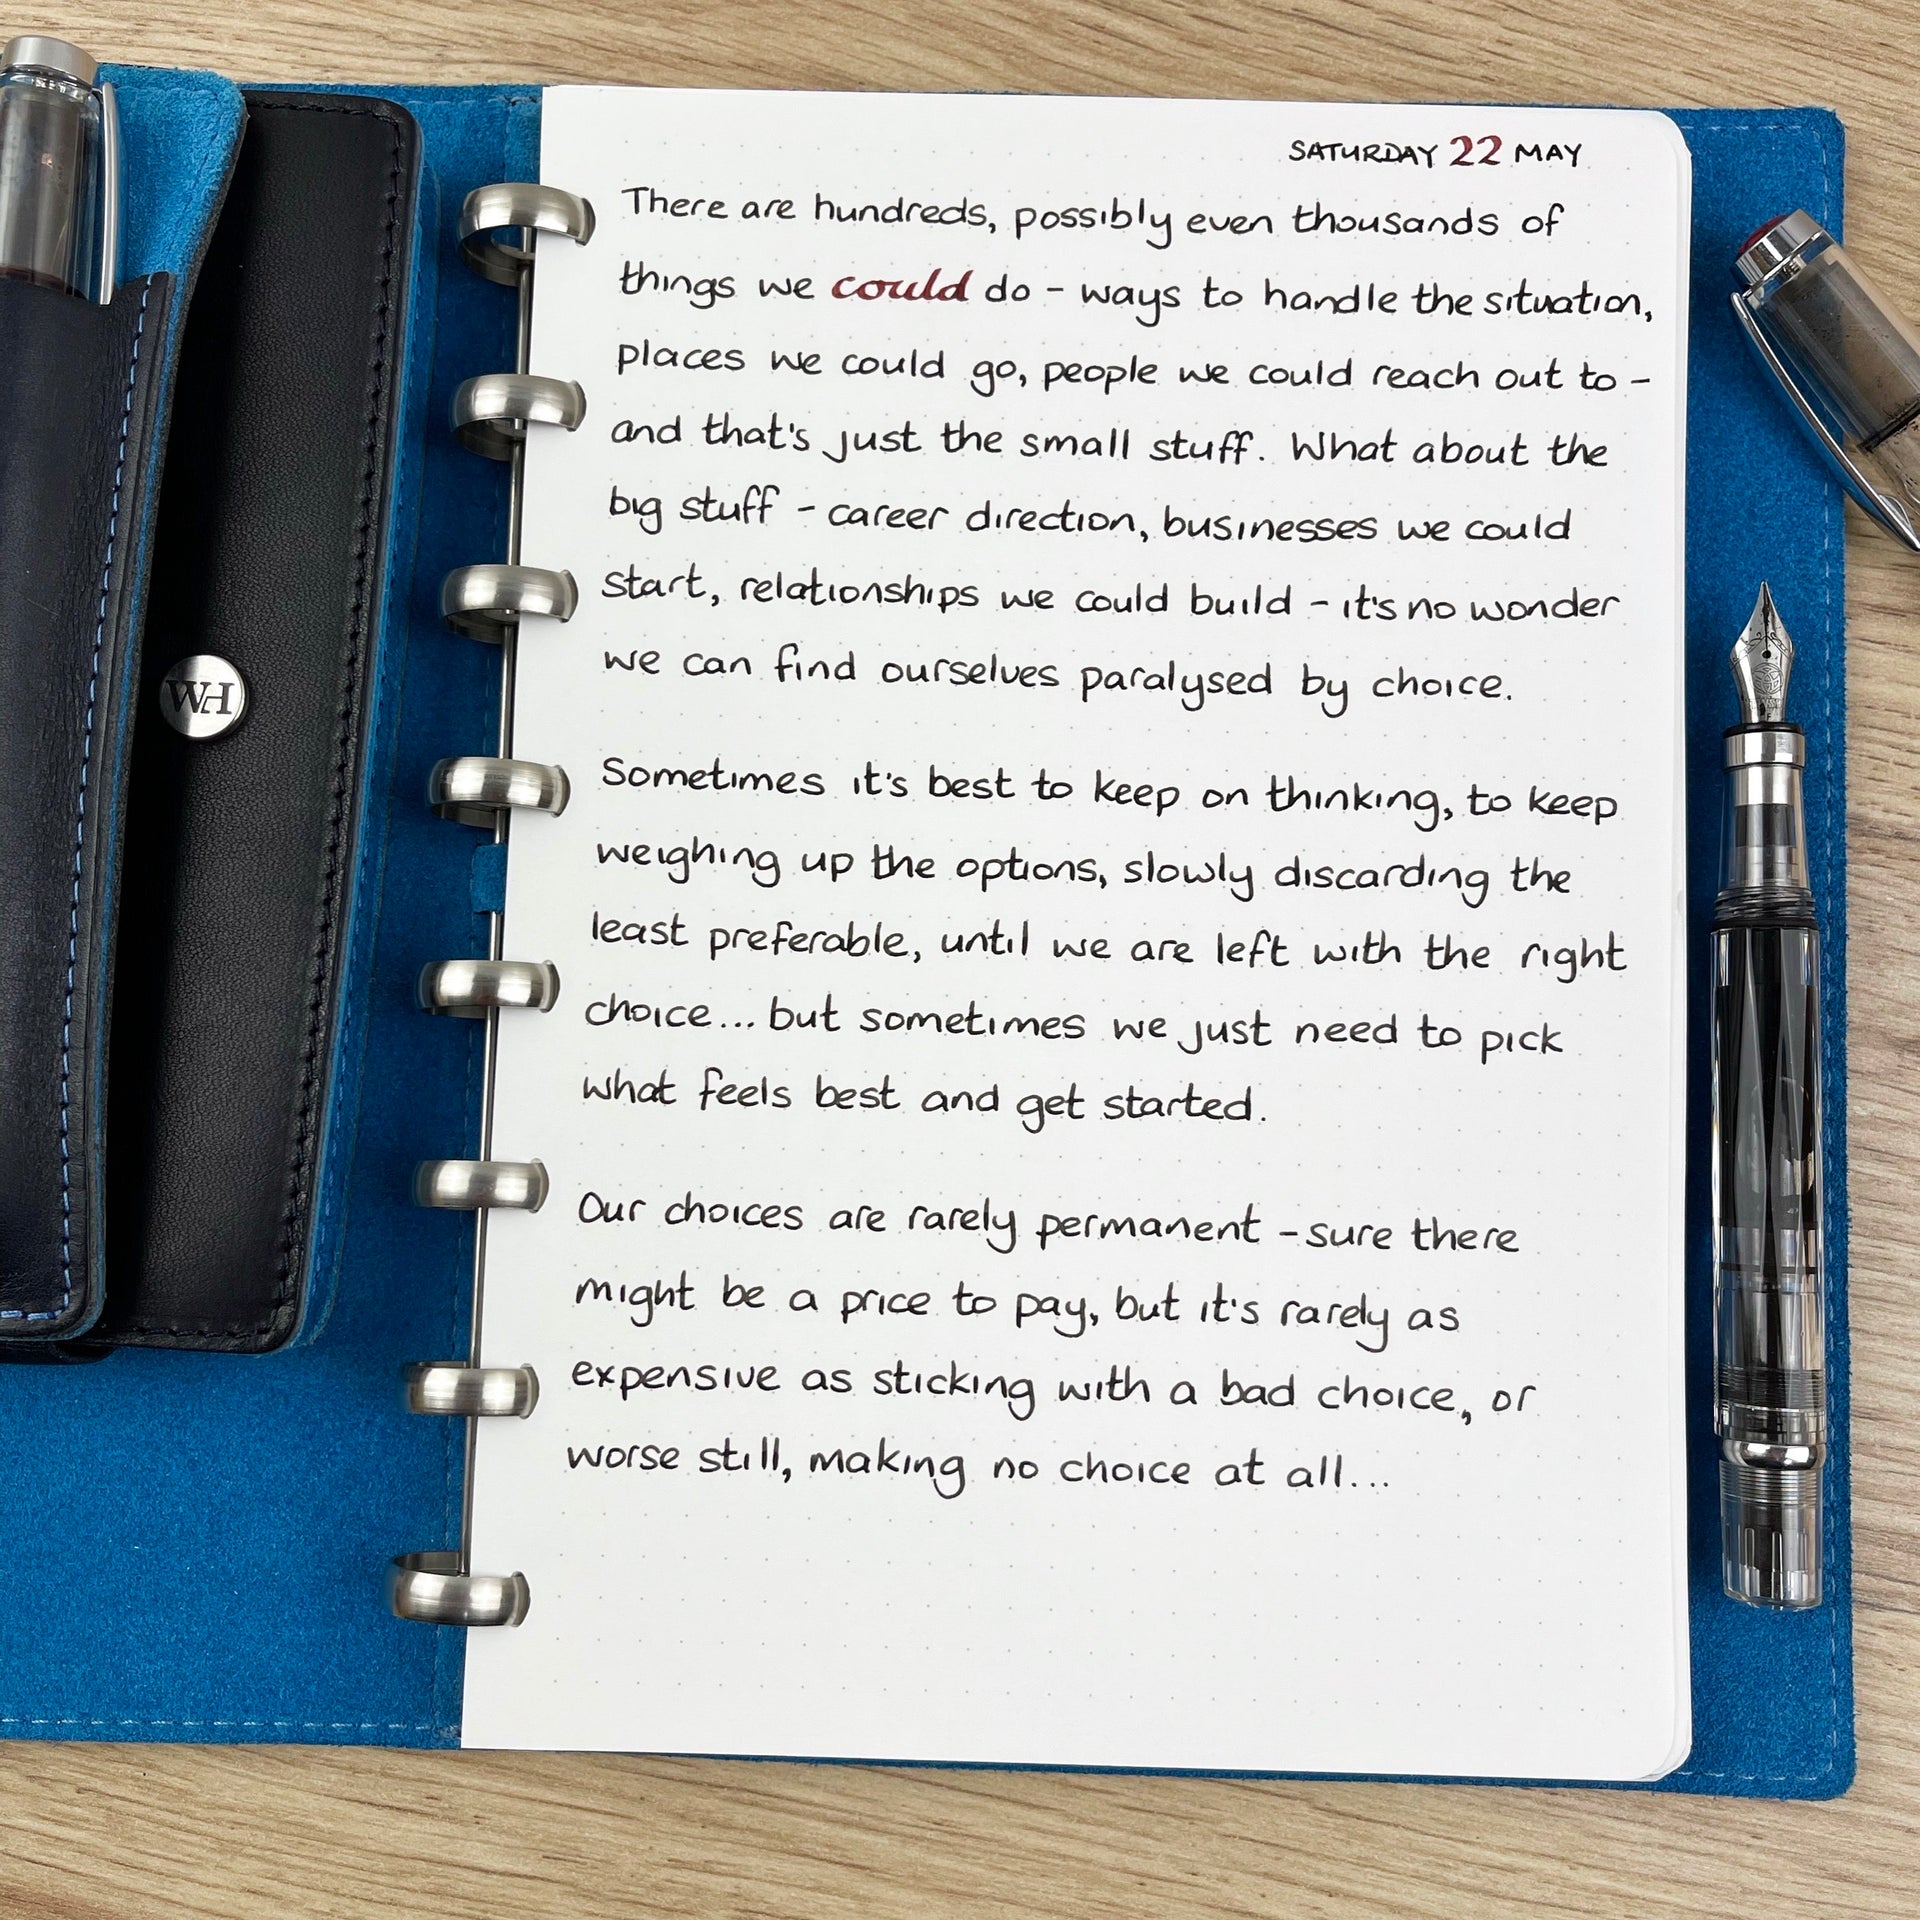 SATURDAY 22 MAY
There are hundreds, possibly even thousands of
things we could do - ways to handle the situation,
places we could go, people we could reach out to -
and that's just the small stuff. What about the
big stuff - career direction, businesses we could
start, relationships we could build - it's no wonder
we can find ourselves paralysed by choice.
Sometimes it's best to keep on thinking, to keep
weighing up the options, slowly discarding the
least preferable, until we are left with the right
choice... but sometimes we just need to pick
what feels best and get started.
Our choices are rarely permanent - sure there
might be a price to pay, but it's rarely as
expensive as sticking with a bad choice, or
worse still, making no choice at all...
WH